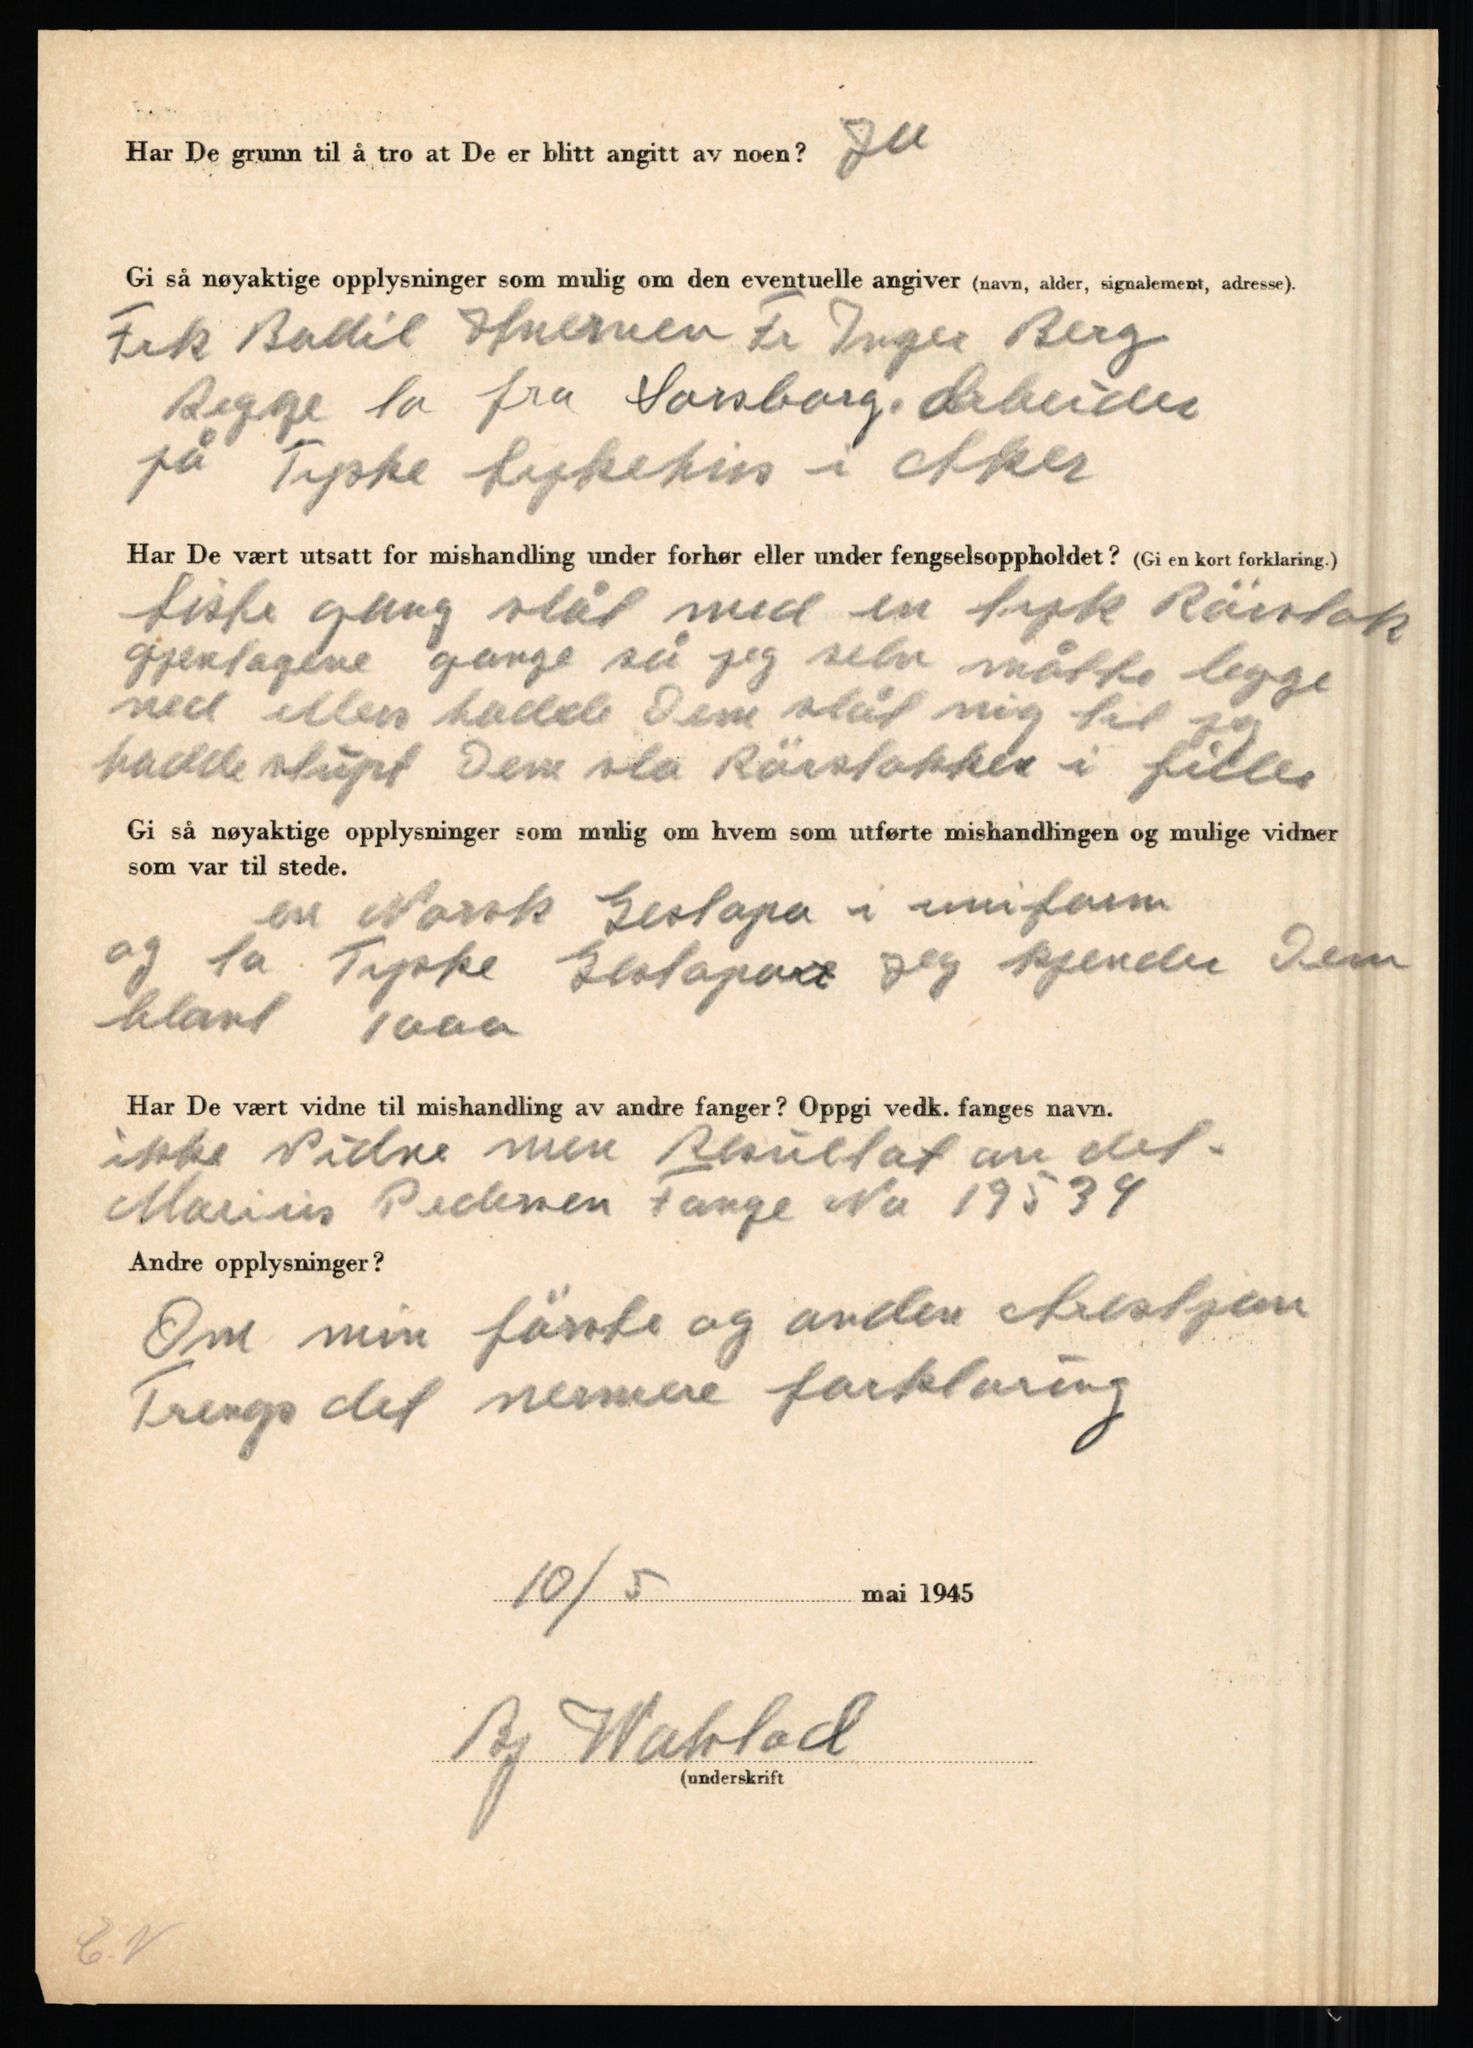 Har De grunn til å tro at De er blitt angitt av noen? Ja
Gi så nøyaktige opplysninger som mulig om den eventuelle angiver (navn, alder, signalement, adresse).
Frk Bodil Fr Inger Berg
Begge to fra Sarsborg. Arbeider
på Tyske sykehus i Aker
Har De vært utsatt for mishandling under forhør eller under fengselsoppholdet? (Gi en kort forklaring.)
siste gang slåt med en tysk Rörstok
gjentagene gange så jeg selv måtte legge
ned ellers hadde Dem slåt mig til jeg
hadde stupt Dem slo Rörstokken i filler
Gi så nøyaktige opplysninger som mulig om hvem som utførte mishandlingen og mulige vidner
som var til stede.
en Norsk Gestapo i uniform
og to Tyske Gestapoer jeg kjender Dem
blant 1000
Har De vært vidne til mishandling av andre fanger? Oppgi vedk. fanges navn.
ikke Vidne men Resultat av det.
Marius Pedersen Fange No 19539
Andre opplysninger?
Om min förste og anden
Trengs det nermere forklaring
10/5 mai 1945
Bj Wahlad
(underskrift
E.N